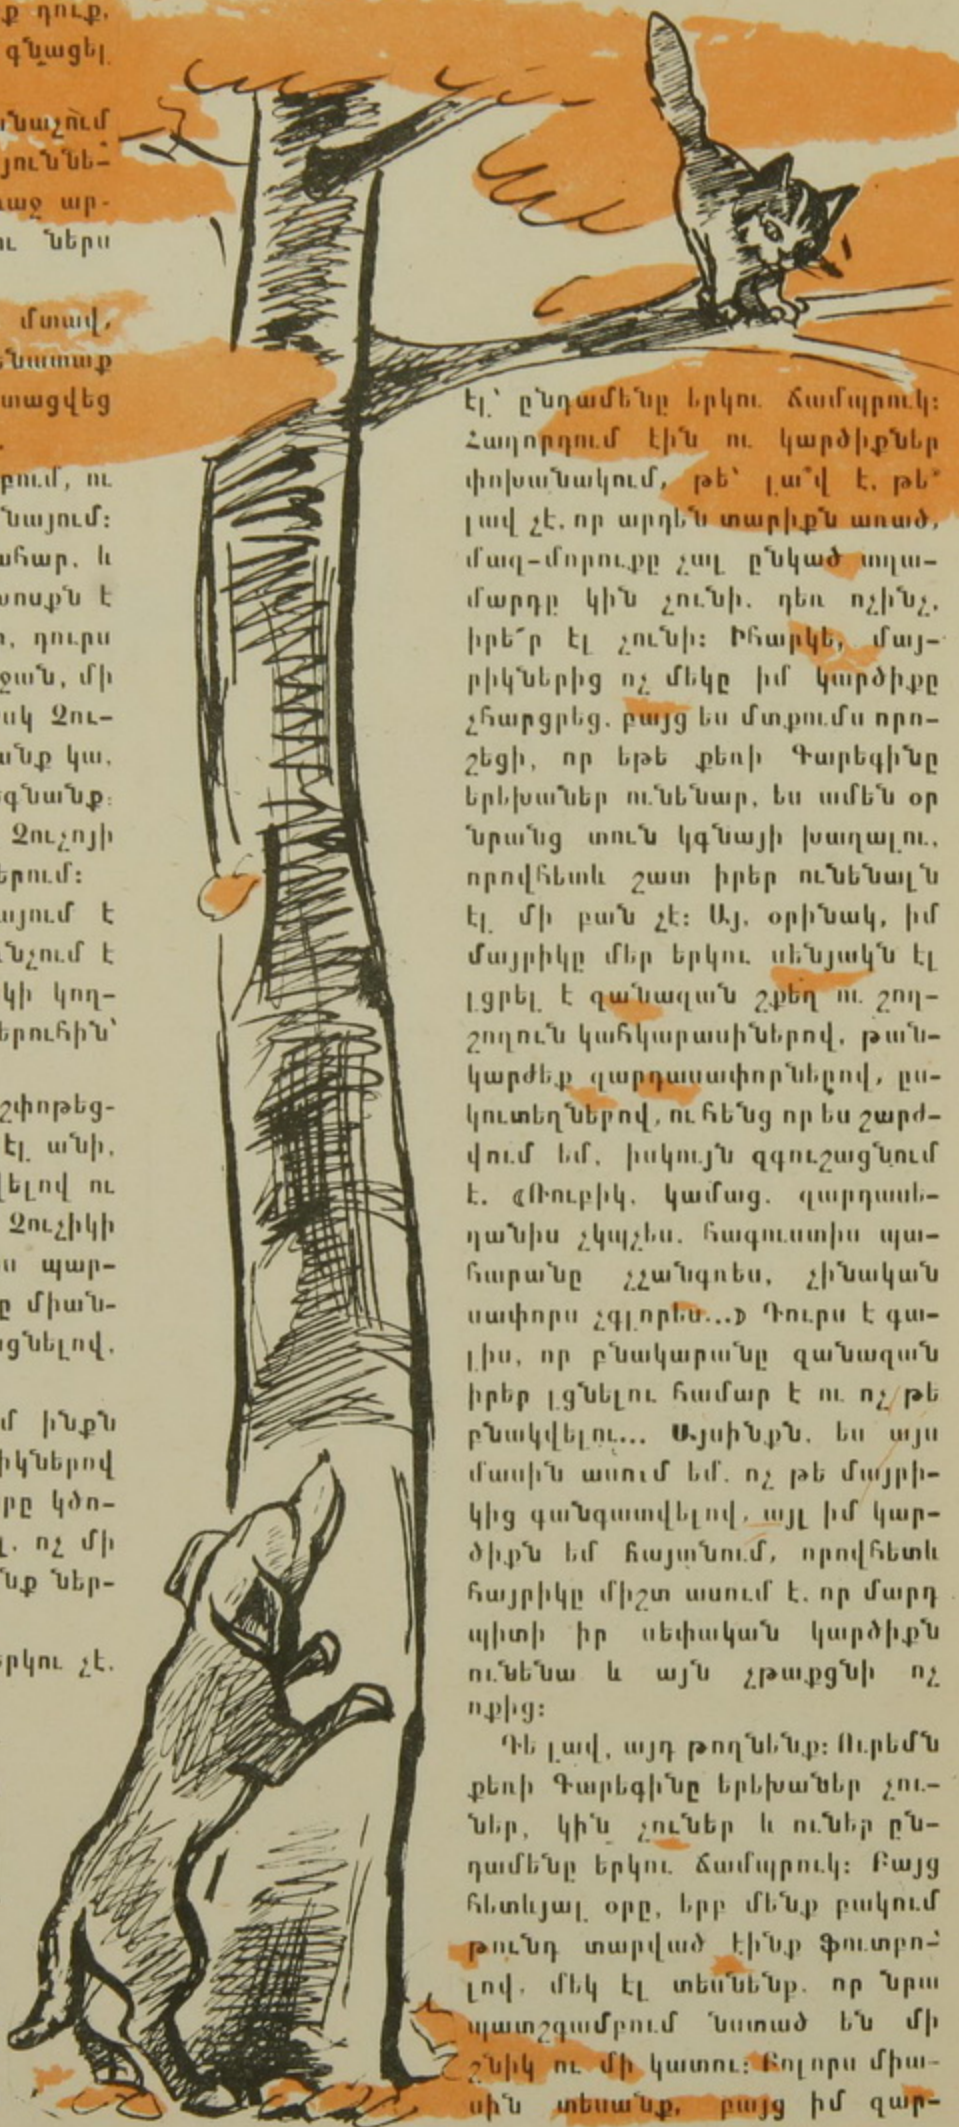 ք դուք,
գնացել
նաչում
յուննե-
ւաջ ար-
ու ներս
մտավ,
ենատաք
տացվեց
բում, ու
նայում։
ահար, և
խոսքն է
ր, դուրս
ջան, մի
սկ Չու-
անք կա,
գնանք։
Չուչոյի
երում։
այում է
նչում է
կի կող-
երուհին՝
շփոթեց-
էլ անի,
վելով ու
Չուչիկի
ս պար-
ը միան-
ցնելով,
մ ինքն
իկներով
րը կծո-
լ, ոչ մի
նք ներ-
երկու չէ,
էլ՝ ընդամենը երկու ճամպրուկ։
Հաղորդում էին ու կարծիքներ
փոխանակում, թե՝ լա՞վ է, թե՞
լավ չէ, որ արդեն տարիքն առած,
մազ-մորուքը չալ ընկած տղա-
մարդը կին չունի, դեռ ոչինչ,
իրե՜ր էլ չունի։ Իհարկե, մայ-
րիկներից ոչ մեկը իմ կարծիքը
չհարցրեց, բայց ես մտքումս որո-
շեցի, որ եթե քեռի Գարեգինը
երեխաներ ունենար, ես ամեն օր
նրանց տուն կգնայի խաղալու,
որովհետև շատ իրեր ունենալն
էլ մի բան չէ։ Այ, օրինակ, իմ
մայրիկը մեր երկու սենյակն էլ
լցրել է զանազան շքեղ ու շող-
շողուն կահկարասիներով, թան-
կարժեք զարդասափորներով, ըս-
կուտեղներով, ու հենց որ ես շարժ-
վում եմ, իսկույն զգուշացնում
է. «Ռուբիկ, կամաց, զարդասե-
ղանիս չկպչես, հագուստիս պա-
հարանը չչանգռես, չինական
սափորս չգլորես...» Դուրս է գա-
լիս, որ բնակարանը զանազան
իրեր լցնելու համար է ու ոչ թե
բնակվելու... Այսինքն, ես այս
մասին ասում եմ, ոչ թե մայրի-
կից գանգատվելով, այլ իմ կար-
ծիքն եմ հայտնում, որովհետև
հայրիկը միշտ ասում է, որ մարդ
պիտի իր սեփական կարծիքն
ունենա և այն չթաքցնի ոչ
ոքից։
Դե լավ, այդ թողնենք։ Ուրեմն
քեռի Գարեգինը երեխաներ չու-
ներ, կին չուներ և ուներ ըն-
դամենը երկու ճամպրուկ։ Բայց
հետևյալ օրը, երբ մենք բակում
թունդ տարված էինք ֆուտբո-
լով, մեկ էլ տեսնենք, որ նրա
պատշգամբում նստած են մի
շնիկ ու մի կատու։ Բոլորս միա-
սին տեսանք, բայց իմ զար-